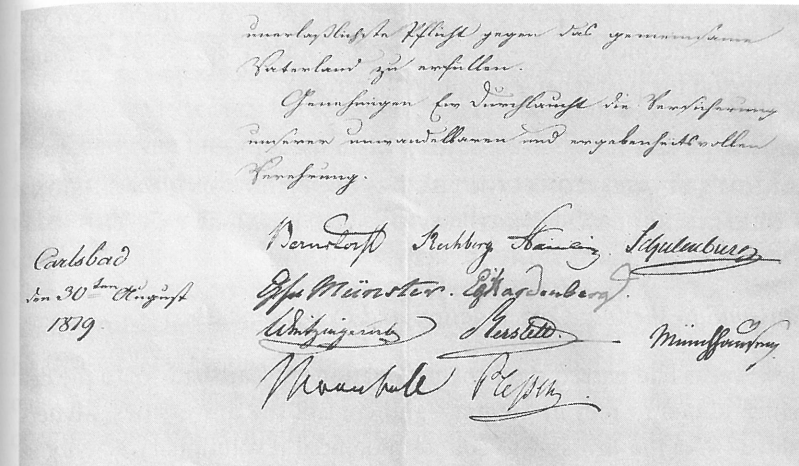 unerlaßlichste Pflicht gegen das gemeinsame
Vaterland zu erfüllen.
Genehmigen Ew Durchlaucht die Versicherung
unserer unwandelbaren und ergebenheitsvollen
Verehrung.
Bernstorff Rechberg Stainlein Schulenburg
Carlsbad
den 30ten August
1819
Gf Münster. Hardenberg.
Wintzingerode Berstett Münchhausen
Marschall Plessen